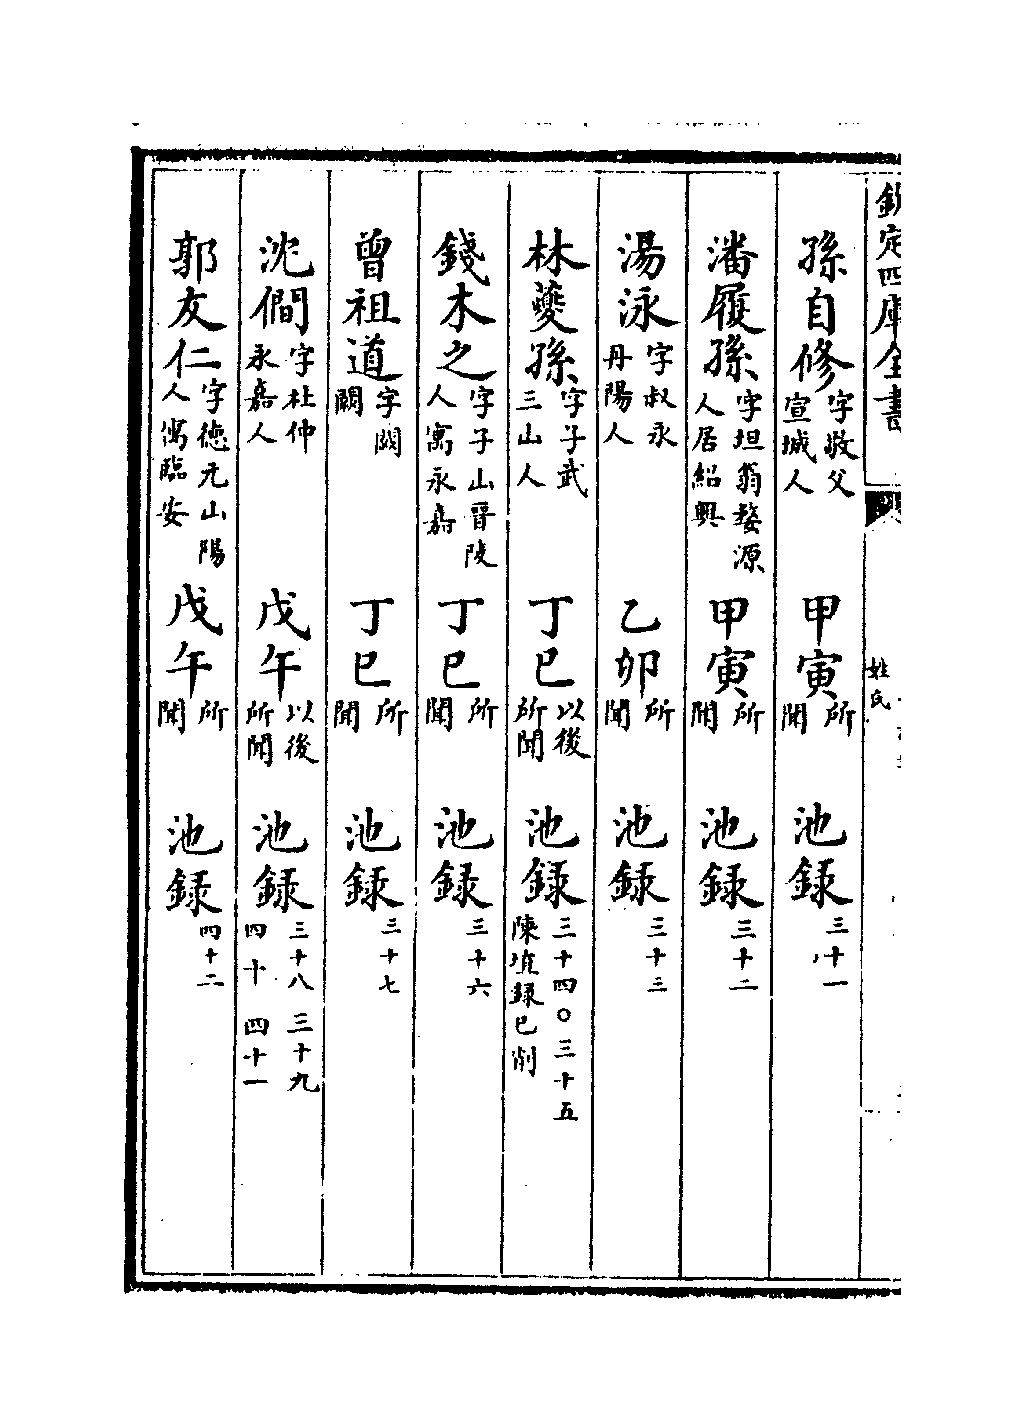 欽定四庫全書
姓氏
孫自修字敬父宣城人 甲寅所聞 池録三十一
潘履孫字坦翁婺源人居紹興 甲寅所聞 池録三十二
湯泳字叔永丹陽人 乙卯所聞 池録三十三
林夔孫字子武三山人 丁巳以後所聞 池録三十四○三十五陳埴録已削
錢木之字子山晉陵人寓永嘉 丁巳所聞 池録三十六
曾祖道字闕闕 丁巳所聞 池録三十七
沈僩字杜仲永嘉人 戊午以後所聞 池録三十八三十九四十四十一
郭友仁字德元山陽人寓臨安 戊午所聞 池録四十二